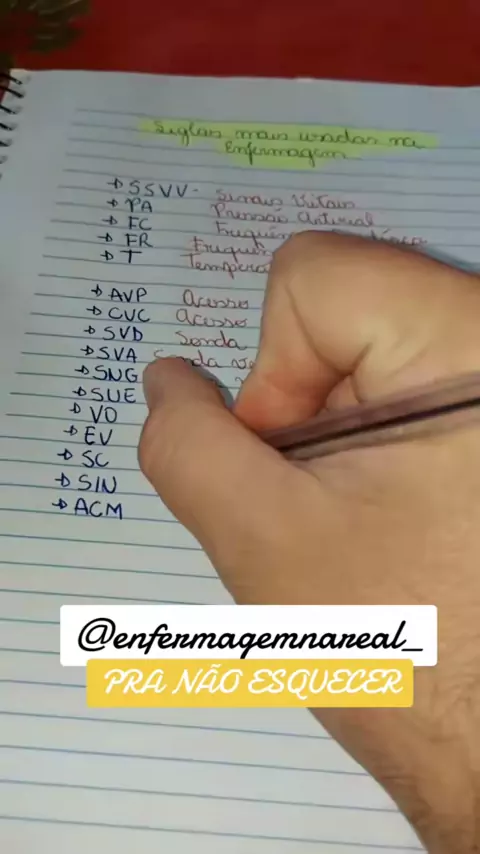 Siglas mais usadas na
Enfermagem
→ SSVV - Sinais Vitais
→ PA Pressão Arterial
→ FC
→ FR
→ T
→ AVP Acesso
→ CVC Acesso
→ SVD Sonda
→ SVA Sonda
→ SNG
→ SUE
→ VO
→ EV
→ SC
→ SIN
→ ACM
@enfermagemnareal_
PRA NÃO ESQUECER